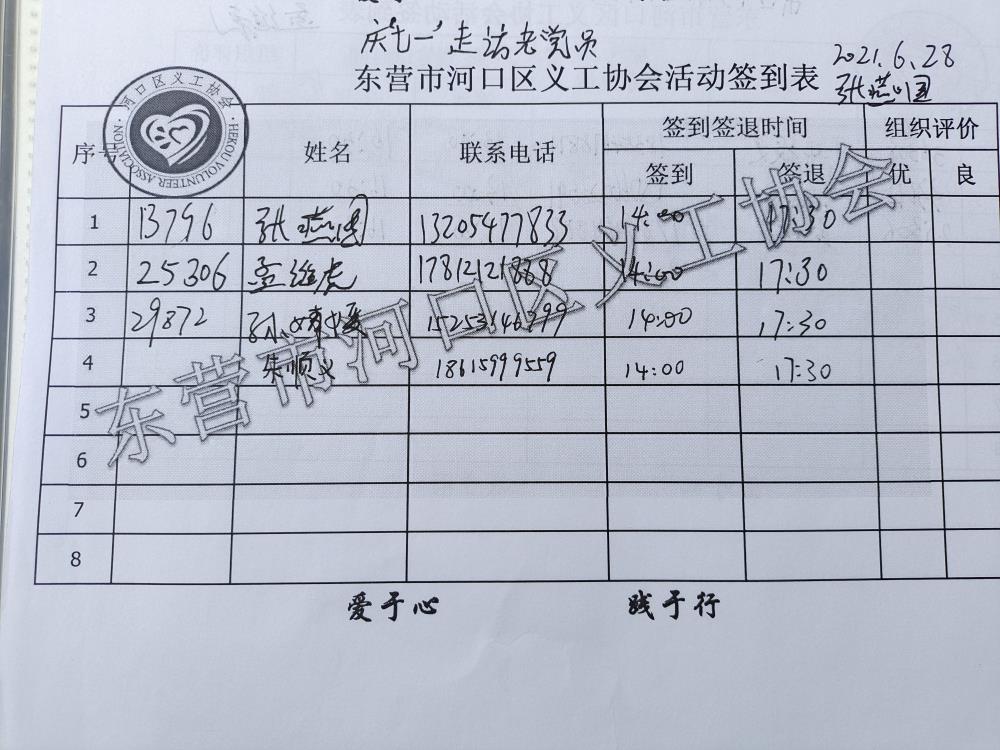 庆“七一”走访老党员
2021.6.28
东营市河口区义工协会活动签到表
张燕园
河口区义工协会
HEKOU VOLUNTEER ASSOCIATION
序号 姓名 联系电话 签到签退时间 组织评价
签到 签退 优 良
1 13796 张燕园 13205477833 14:00 17:30
2 25306 孟维虎 17812121888 14:00 17:30
3 29872 14:00 17:30
4 朱顺义 18615999559 14:00 17:30
5
6
7
8
东营市河口区义工协会
爱于心 践于行